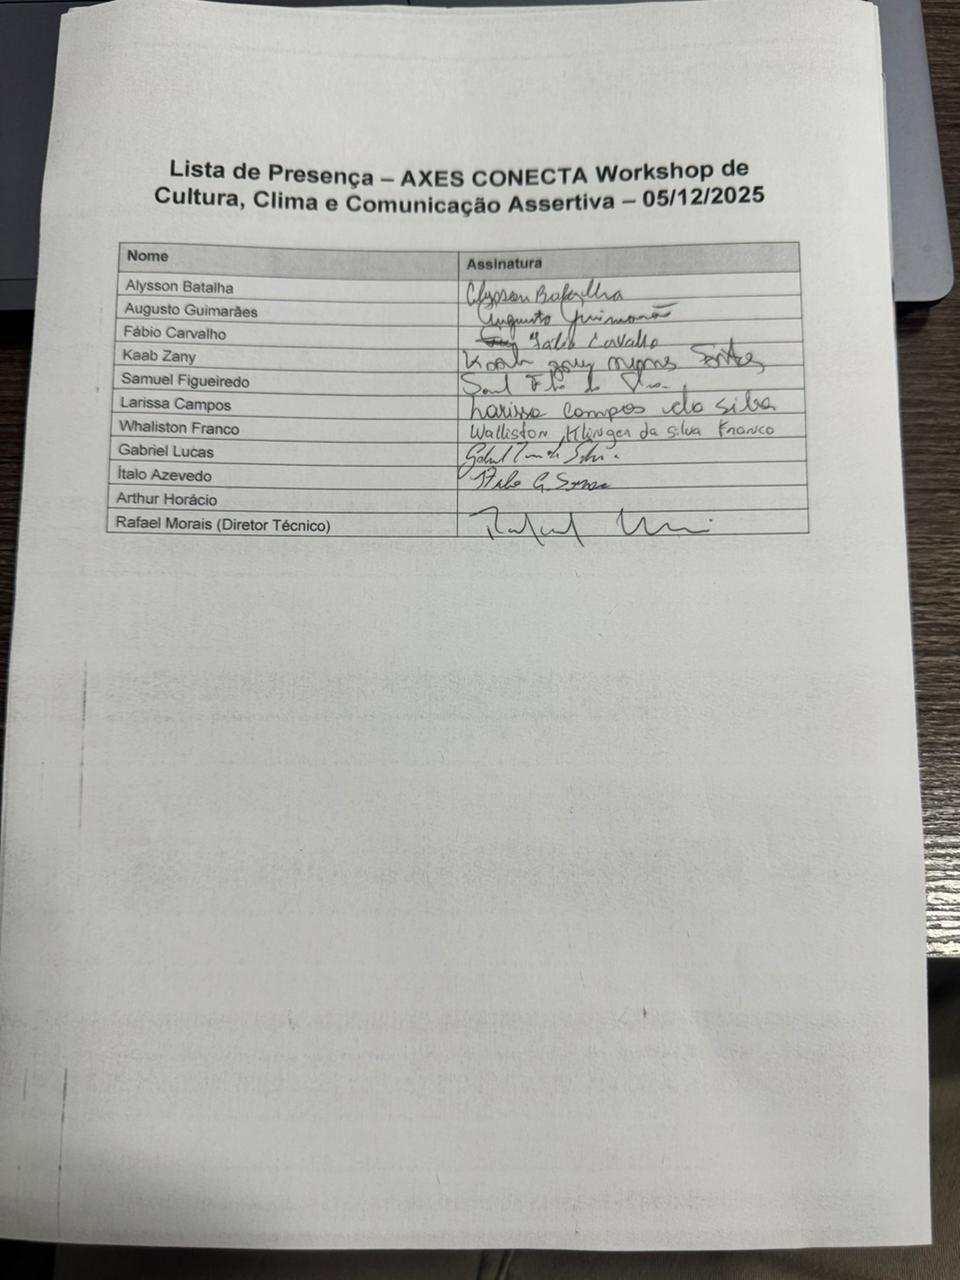 Lista de Presença – AXES CONECTA Workshop de
Cultura, Clima e Comunicação Assertiva – 05/12/2025
Nome Assinatura
Alysson Batalha Alysson Batalha
Augusto Guimarães Augusto Guimarães
Fábio Carvalho Fabio Carvalho
Kaab Zany Kaab Zany
Samuel Figueiredo
Larissa Campos Larissa Campos da Silva
Whaliston Franco Walliston Klinger da Silva Franco
Gabriel Lucas
Ítalo Azevedo Italo G.
Arthur Horácio
Rafael Morais (Diretor Técnico) Rafael